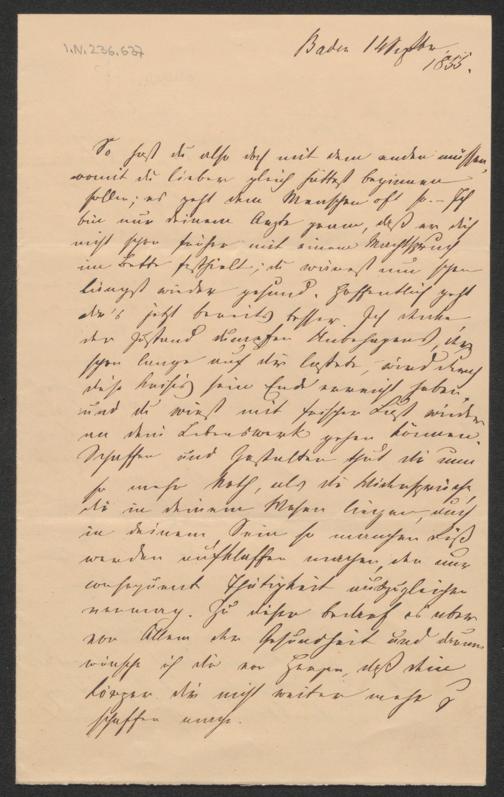 I.N. 236.637
Baden 14 Septbr.
1855.
So hast du also doch mit dem enden müssen,
womit du lieber gleich hättest beginnen
sollen; es geht dem Menschen oft so. – Ich
bin nur deinem Arzte gram, daß er dich
nicht schon früher mit einem Machtspruch
im Bette festhielt; du wärest nun schon
längst wieder gesund. Hoffentlich geht
dir's jetzt bereits besser. Ich denke
der Zustand dumpfen Unbehagens, der
schon lange auf dir lastete, wird durch
diese Krisis sein Ende erreicht haben,
und du wirst mit frischer Lust wieder
an dein Lebenswerk gehen können.
Schaffen und Gestalten thut dir um
so mehr Noth, als die Widersprüche,
die in deinem Wesen liegen, auch
in deinem Sein so manchen Riß
werden aufklaffen machen, den nur
consequente Thätigkeit auszugleichen
vermag. Zu dieser bedarf es aber
vor Allem der Gesundheit und darum
wünsche ich dir von Herzen, daß dein
Körper dir nicht weiter mehr zu
schaffen mache.